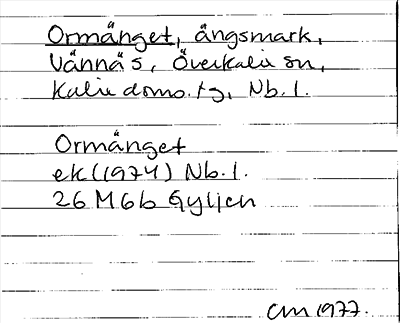 Ormånget, ängsmark,
Vännäs, Överkalix sn,
Kalix doms. tg, Nb. l.
Ormånget
ek (1974) Nb. l.
26 M 6b Gyljen
CM 1977.